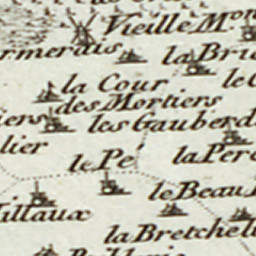 Vieille Mon
ormerais
la Brie
la Cour
des Mortiers
le C
iers
les Gauberd
lier
le Pe
la Pere
le Beau
Tillaux
la Bretchell